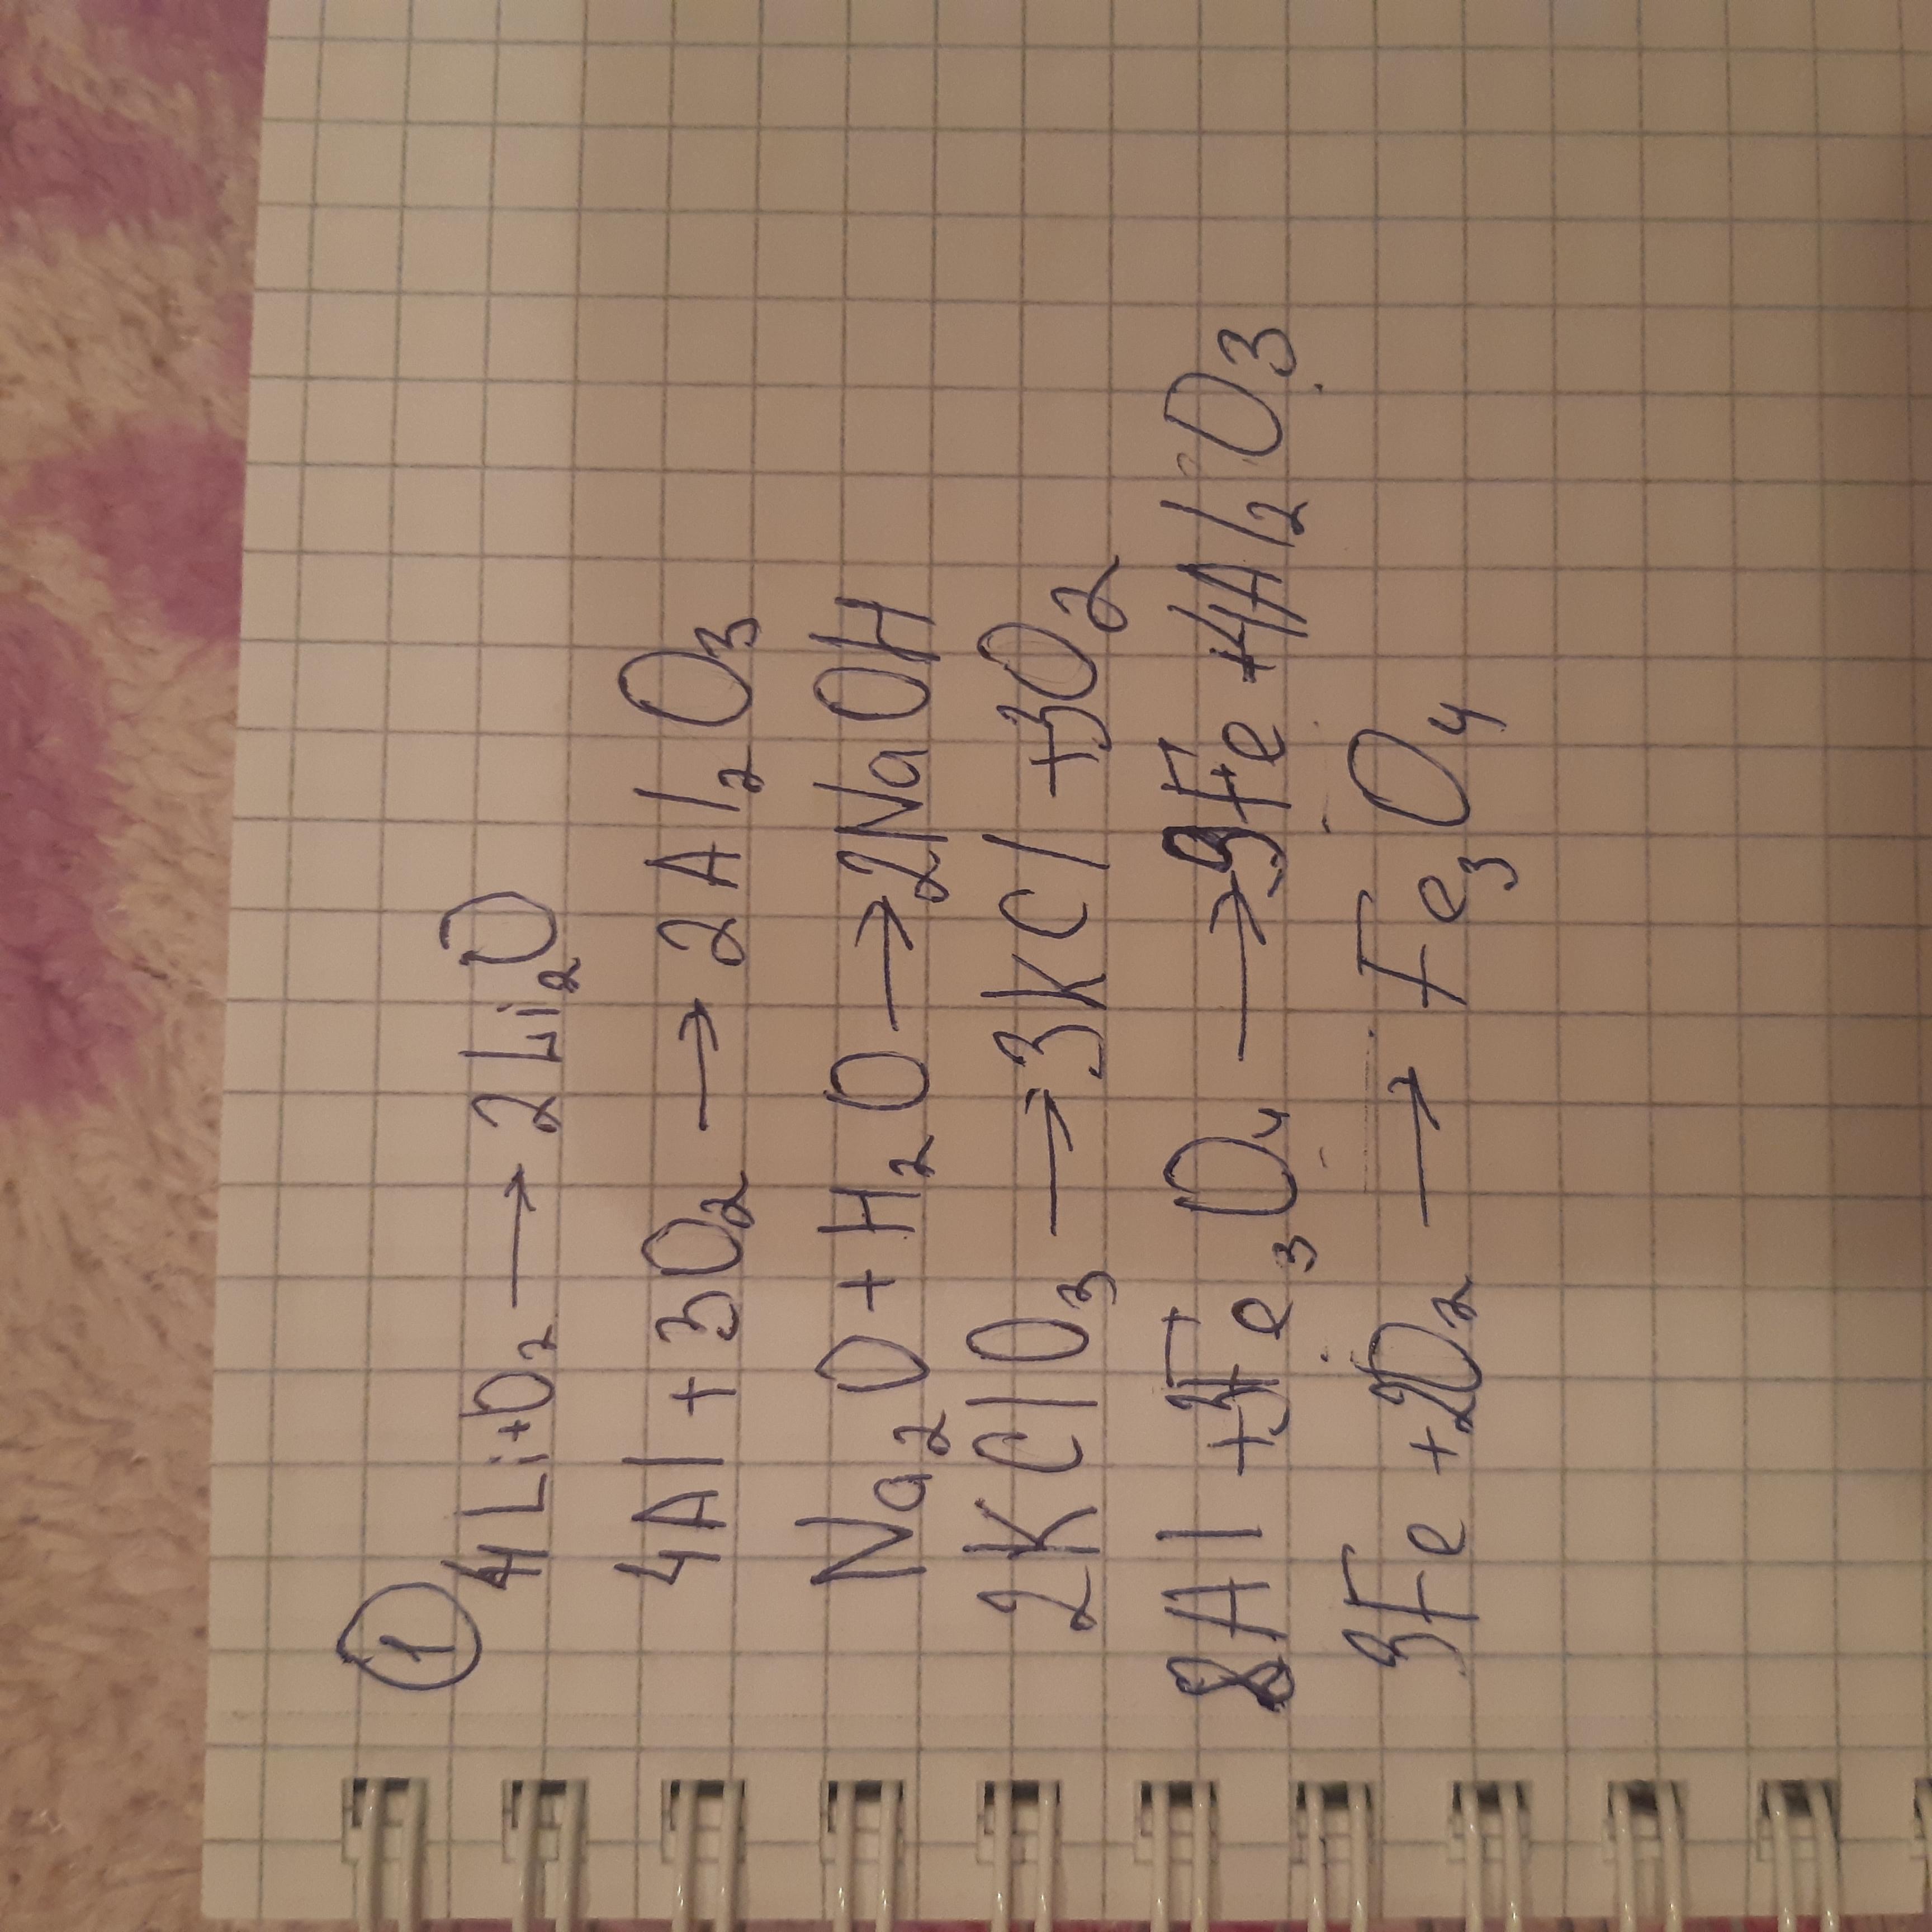 1
4Li+O₂ → 2Li₂O
4Al + 3O₂ → 2Al₂O₃
Na₂O + H₂O → 2NaOH
2KClO₃ → 3KCl + 3O₂
8Al + 3Fe₃O₄ → 9Fe + 4Al₂O₃
3Fe + 2O₂ → Fe₃O₄